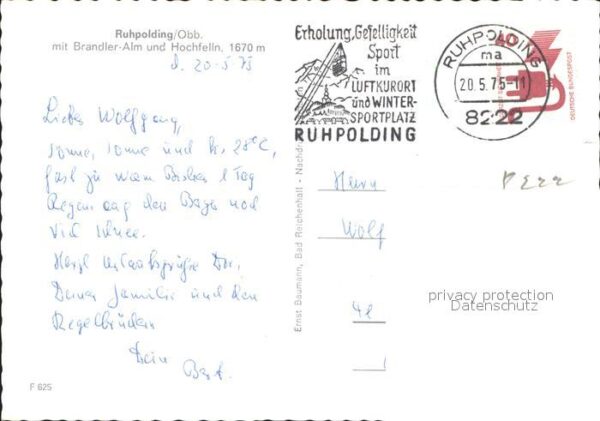 Ruhpolding/Obb.
mit Brandler-Alm und Hochfelln, 1670 m
d. 20.5.75
Lieber Wolfgang,
Sonne, Sonne und 28°C,
fast zu warm Bisher 1 Tag
Regen auf den Berge noch
viel Schnee.
Herzl Urlaubsgrüße Dir,
Deiner Familie und den
Kegelbrüdern
Dein
F 625
Erholung, Geselligkeit
Sport
im
LUFTKURORT
und WINTER-
SPORTPLATZ
RUHPOLDING
RUHPOLDING
ma
20.5.75-11
8222
40
DEUTSCHE BUNDESPOST
Ernst Baumann, Bad Reichenhall - Nachdr
Herrn
Wolf
privacy protection
Datenschutz